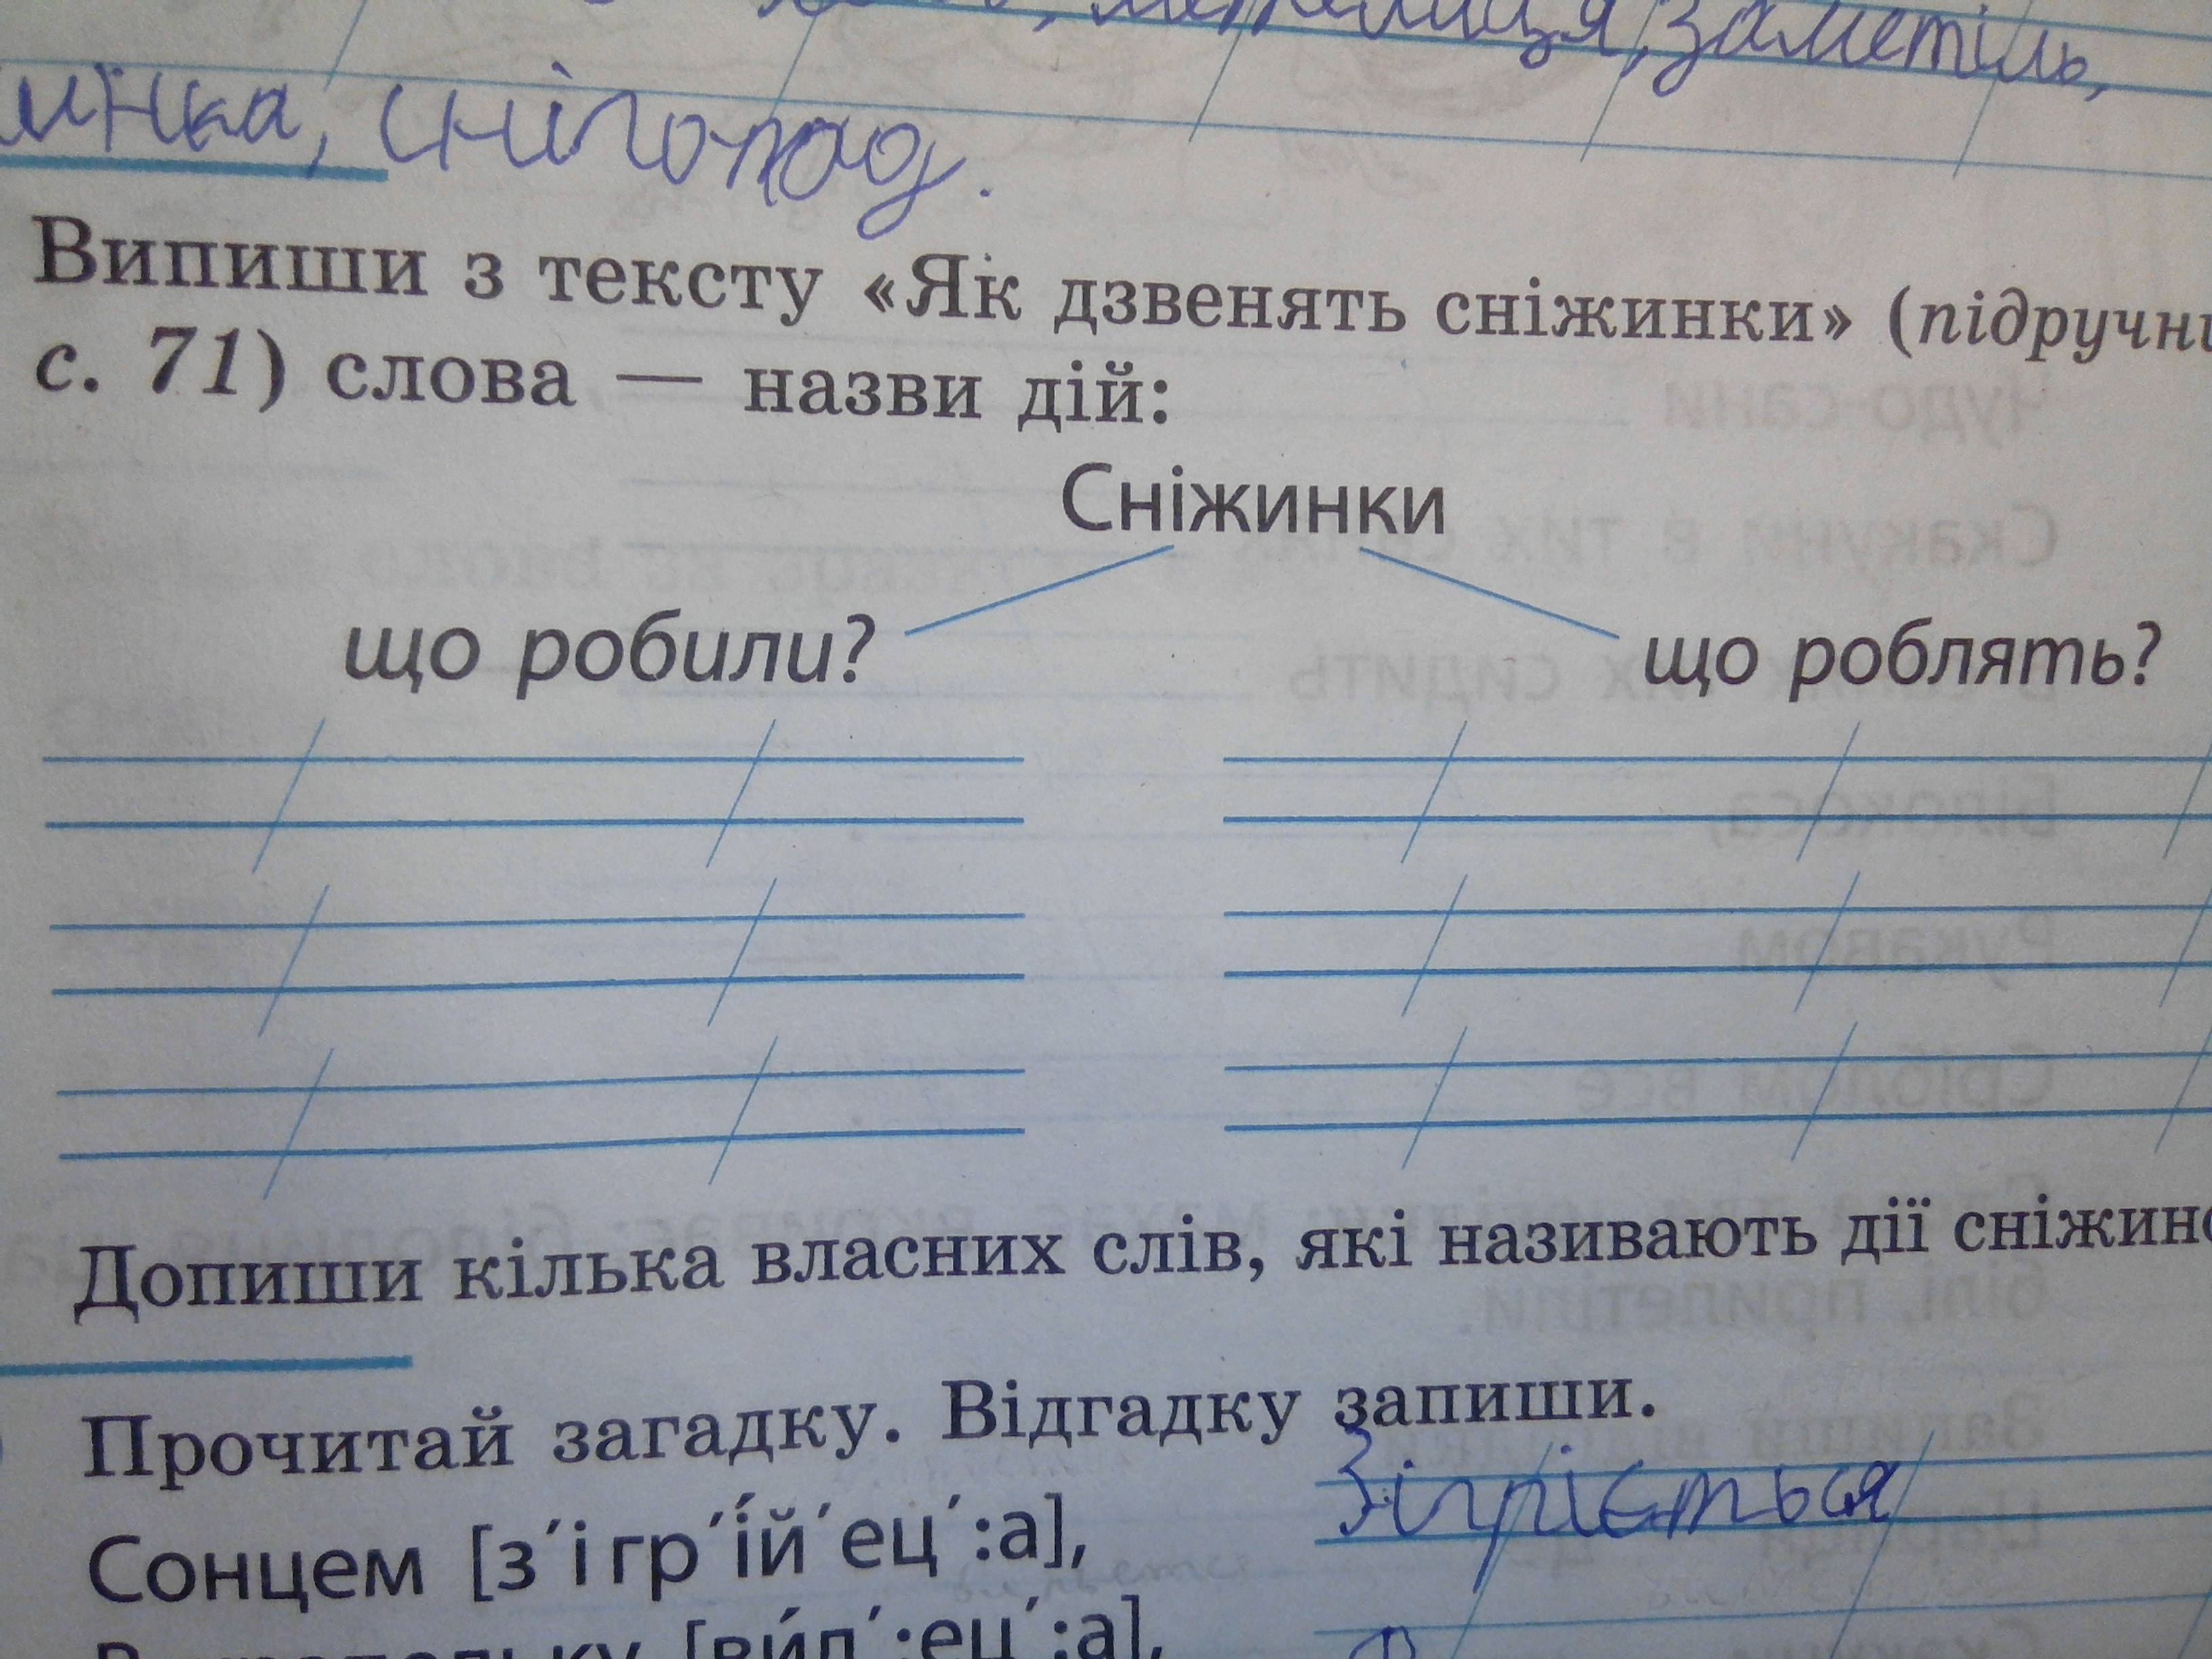 метелиця, заметіль,
інка, снігопад.
Випиши з тексту «Як дзвенять сніжинки» (підручни
с. 71) слова — назви дій:
Сніжинки
що робили? що роблять?
Допиши кілька власних слів, які називають дії сніжино
Прочитай загадку. Відгадку запиши.
Зігріється
Сонцем [з′ігр′íй′ец′:а],
[ви́л′:ец′:а],